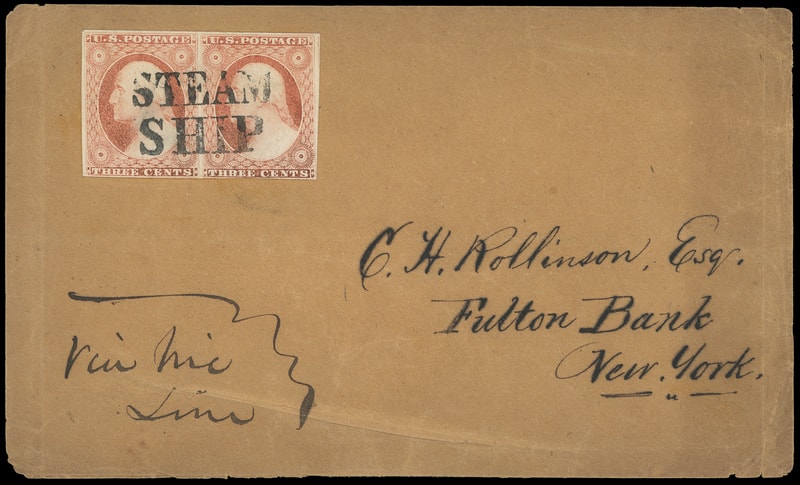 U.S. POSTAGE U.S. POSTAGE
STEAM
SHIP
THREE CENTS THREE CENTS
C. H. Rollinson, Esq.
Fulton Bank
New. York.
Via Nic
Line